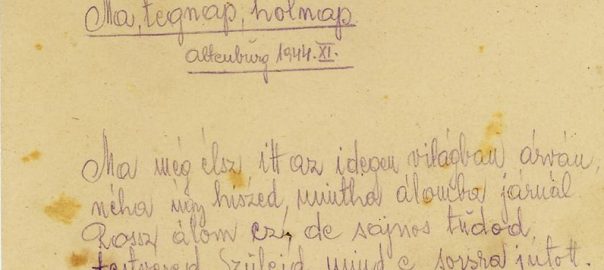 Ma, tegnap, holnap
Altenburg 1944. XI.
Ma még élsz itt az idegen világban árván,
néha úgy hiszed, mintha álomba járnál.
Rossz álom ez, de sajnos tudod,
testvéred, szüleid, mind e sorsra jutott.